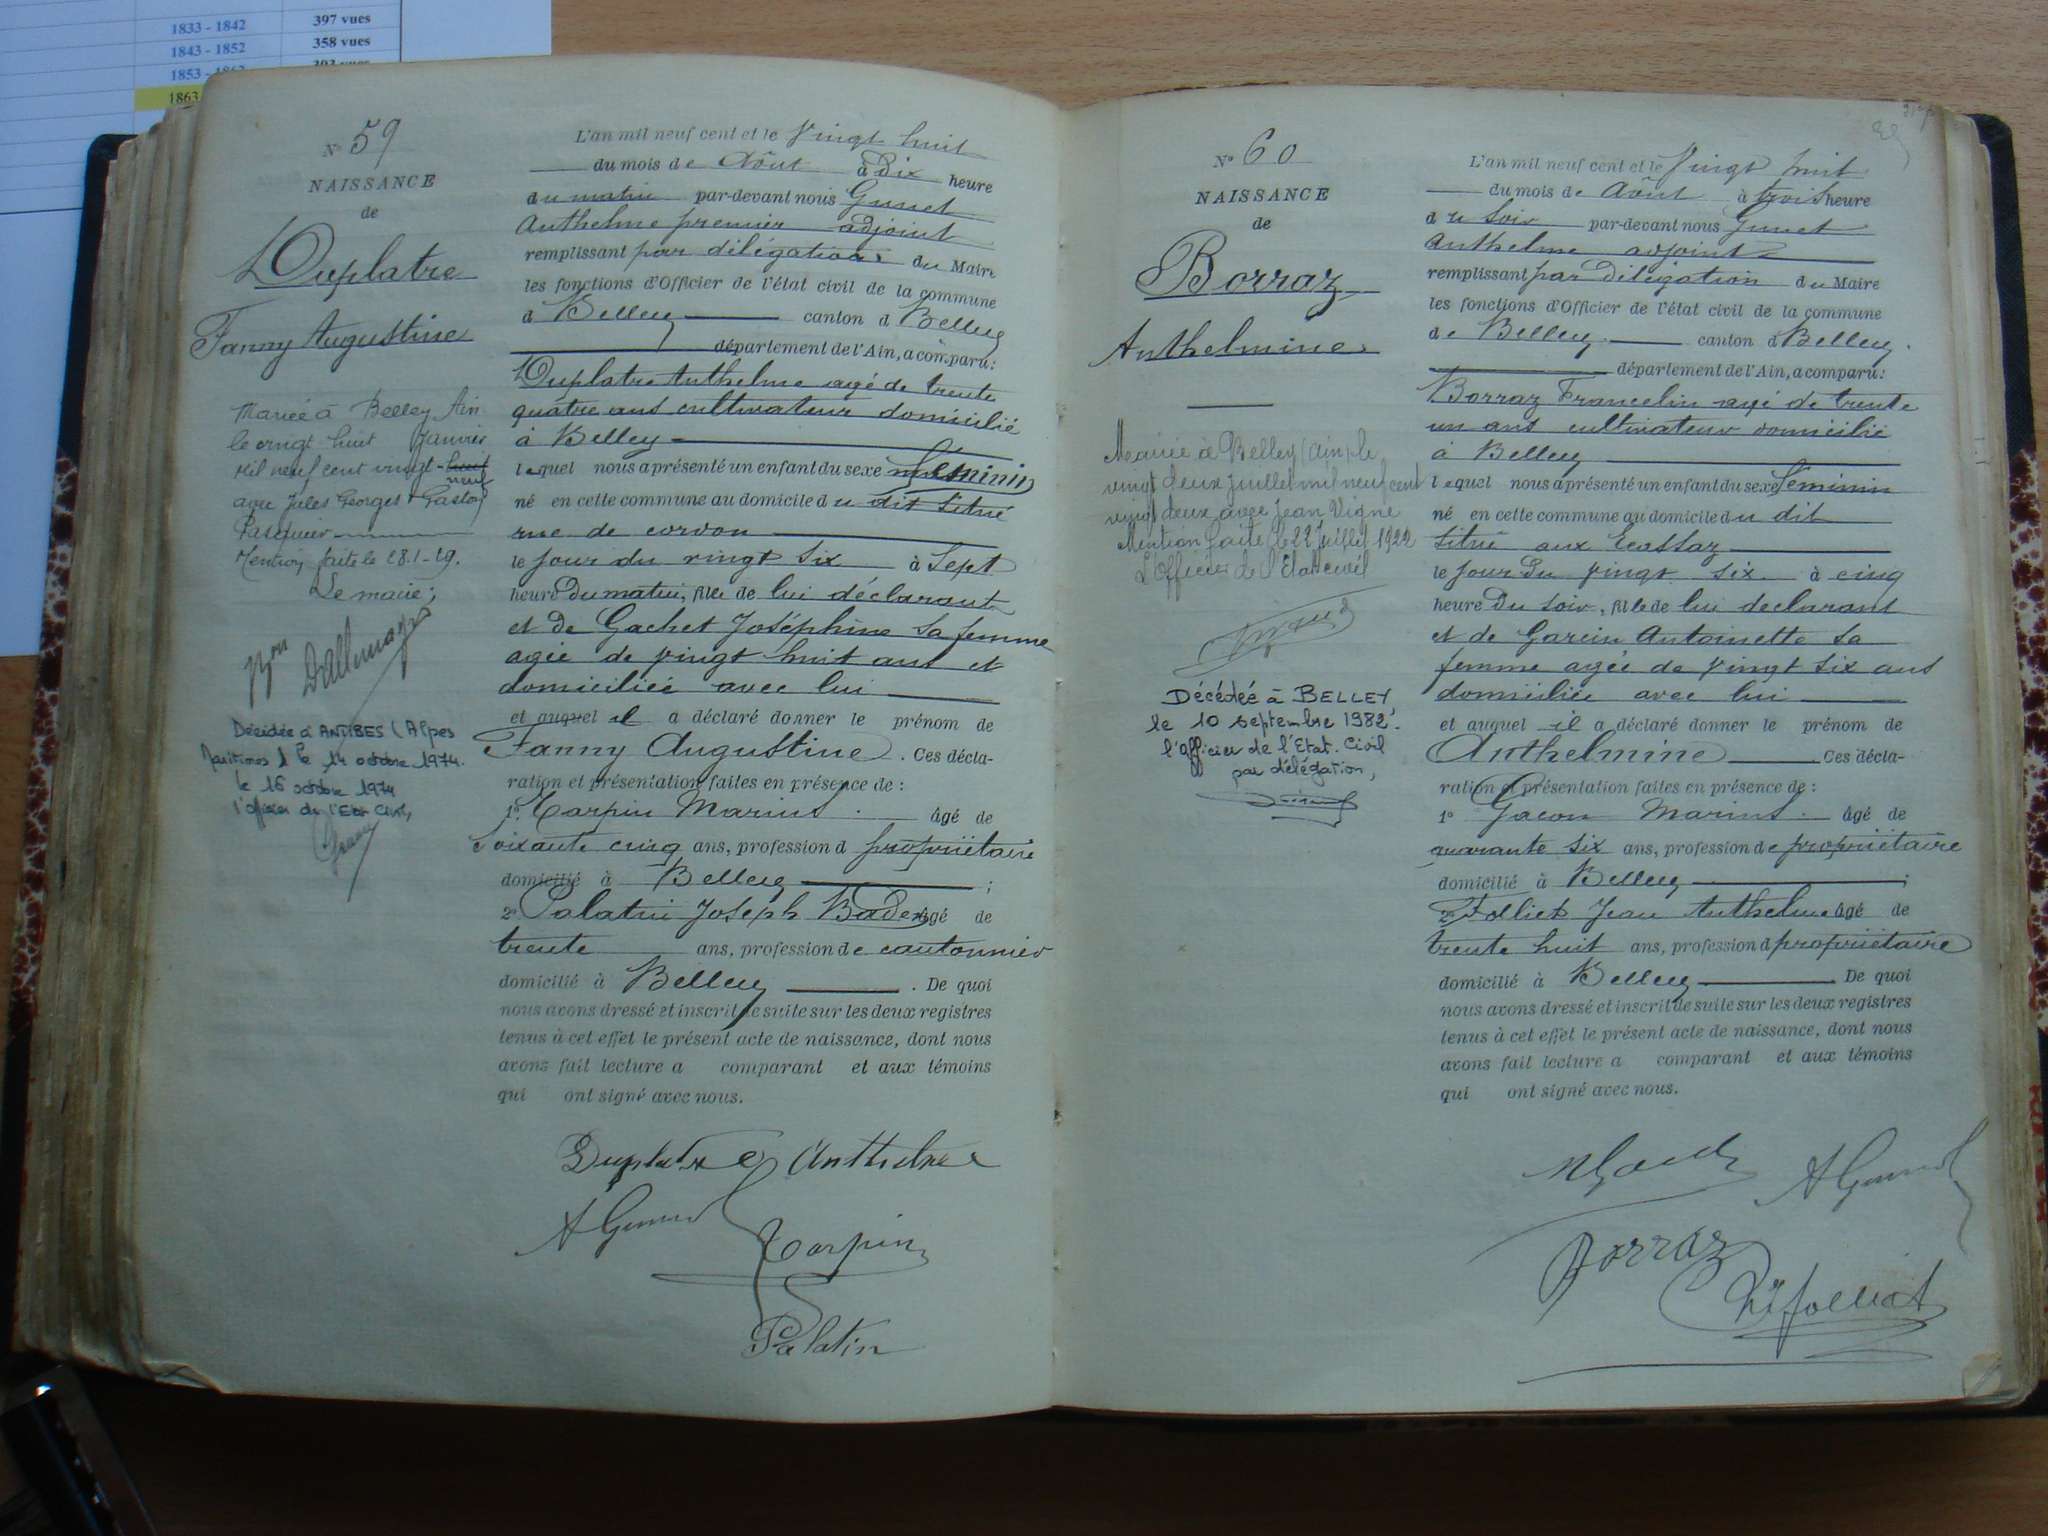 1833 - 1842 397 vues
1843 - 1852 358 vues
1853 - 1862 393 vues
1863
N° 59
NAISSANCE
de
Duplatre
Fanny Augustine
Mariée à Belley Ain
le vingt huit Janvier
mil neuf cent vingt-huit
neuf
avec Jules Georges Gaston
Pasquier
Mention faite le 28-1-29.
Le maire,
Dallemagne
Décédée à ANTIBES (Alpes
Maritimes) le 14 octobre 1974.
le 16 octobre 1974
l'officier de l'Etat Civil,
L'an mil neuf cent et le Vingt huit
du mois de Aôut à Dix heure
du matin par-devant nous Gunet
Anthelme premier adjoint
remplissant par délégation du Maire
les fonctions d'Officier de l'état civil de la commune
d Belley canton d Belley
département de l'Ain, a comparu:
Duplatre Anthelme agé de trente
quatre ans cultivateur domicilié
à Belley
lequel nous a présenté un enfant du sexe féminin
né en cette commune au domicile du dit situé
rue de corvon
le jour du vingt six à Sept
heure du matin, fille de lui déclarant
et de Gachet Joséphine sa femme
agée de vingt huit ans et
domiciliée avec lui
et auquel il a déclaré donner le prénom de
Fanny Augustine. Ces décla-
ration et présentation faites en présence de :
1° Carpin Marius âgé de
Soixante cinq ans, profession d propriétaire
domicilié à Belley ;
2° Palatin Joseph âgé de
trente ans, profession de cantonnier
domicilié à Belley. De quoi
nous avons dressé et inscrit de suite sur les deux registres
tenus à cet effet le présent acte de naissance, dont nous
avons fait lecture a comparant et aux témoins
qui ont signé avec nous.
Duplatre Anthelme
A Gunet
Carpin
Palatin
N° 60
NAISSANCE
de
Borraz
Anthelmine
Mariée à Belley (Ain) le
vingt deux juillet mil neuf cent
vingt deux avec Jean Vigne
Mention faite le 22 juillet 1922
L'Officier de l'Etat civil
Décédée à BELLEY,
le 10 septembre 1982.
l'officier de l'Etat. Civil
par délégation,
L'an mil neuf cent et le Vingt huit
du mois de Aôut à trois heure
du soir par-devant nous Gunet
Anthelme adjoint
remplissant par Délégation du Maire
les fonctions d'Officier de l'état civil de la commune
de Belley canton d Belley.
département de l'Ain, a comparu:
Borraz Francelin agé de trente
un ans cultivateur domicilié
à Belley
lequel nous a présenté un enfant du sexe féminin
né en cette commune au domicile du dit
situé aux Ecassaz
le jour Du vingt six à cinq
heure Du soir, fille de lui déclarant
et de Garcin Antoinette sa
femme agée de vingt six ans
domiciliée avec lui
et auquel il a déclaré donner le prénom de
Anthelmine. Ces décla-
ration et présentation faites en présence de :
1° Gacon Marius. âgé de
quarante six ans, profession de propriétaire
domicilié à Belley ;
2° Folliet Jean Anthelme âgé de
trente huit ans, profession d propriétaire
domicilié à Belley. De quoi
nous avons dressé et inscrit de suite sur les deux registres
tenus à cet effet le présent acte de naissance, dont nous
avons fait lecture a comparant et aux témoins
qui ont signé avec nous.
A Gunet
Borraz